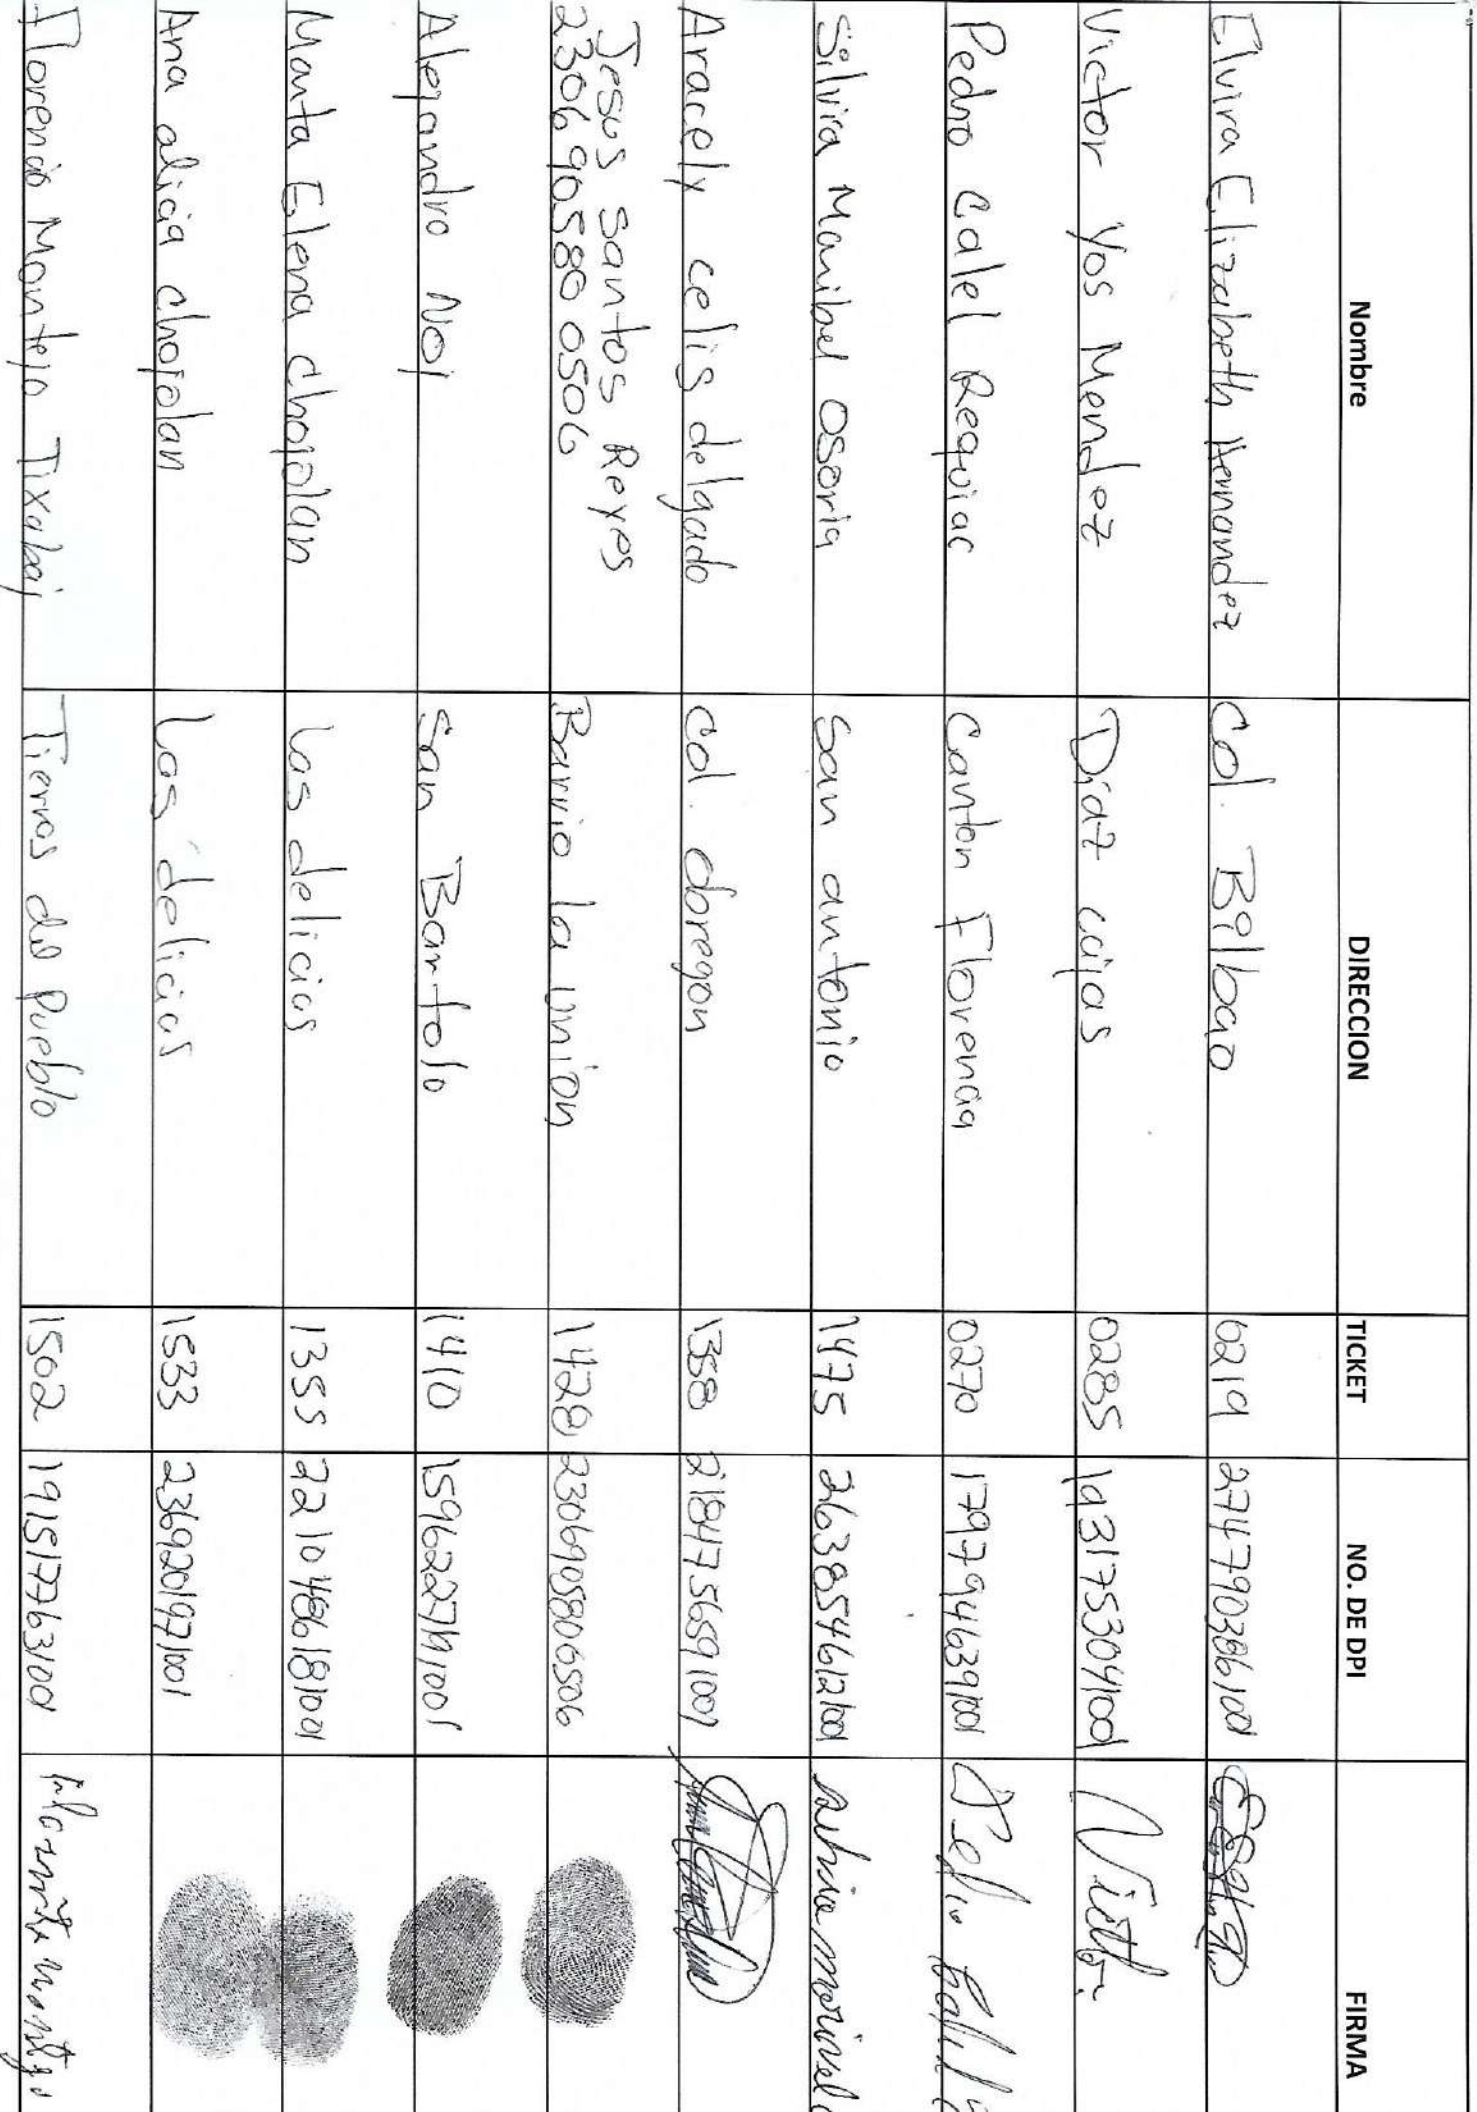 Nombre DIRECCION TICKET NO. DE DPI FIRMA
Elvira Elizabeth Hernandez Col. Bilbao 0219 27477903861001
Victor Yos Mendez Diaz cajas 0285 1931753041001
Pedro Calel Requiac Canton Florencia 0270 1797946391001
Silvia Maribel Osoria San antonio 1475 2638546121001
Aracely celis delgado Col. obregon 1358 2184756591001
Jesus Santos Reyes
2306905800506 Barrio la union 1428 2306905800506
Alejandro Noj San Bartolo 1410 1596227191001
Marta Elena chojolan Las delicias 1355 2210486181001
Ana alicia chojolan Las delicias 1533 2369201971001
Florencio Montejo Tixabaj Tierras del Pueblo 1502 1915177631001